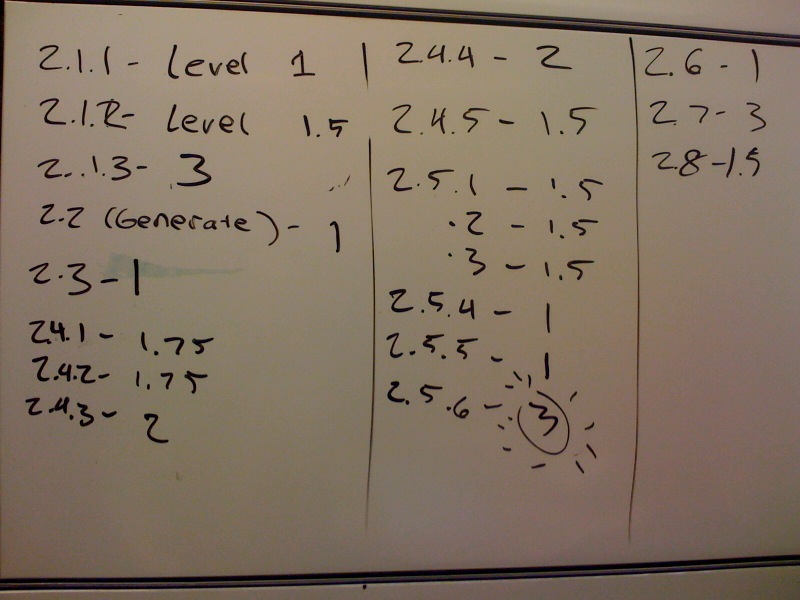 2.1.1 - Level 1
2.1.2- Level 1.5
2..1.3- 3
2.2 (Generate) - 1
2.3 - 1
2.4.1 - 1.75
2.4.2 - 1.75
2.4.3 - 2
2.4.4 - 2
2.4.5 - 1.5
2.5.1 - 1.5
.2 - 1.5
.3 - 1.5
2.5.4 - 1
2.5.5 - 1
2.5.6 - 3
2.6 - 1
2.7 - 3
2.8 - 1.5